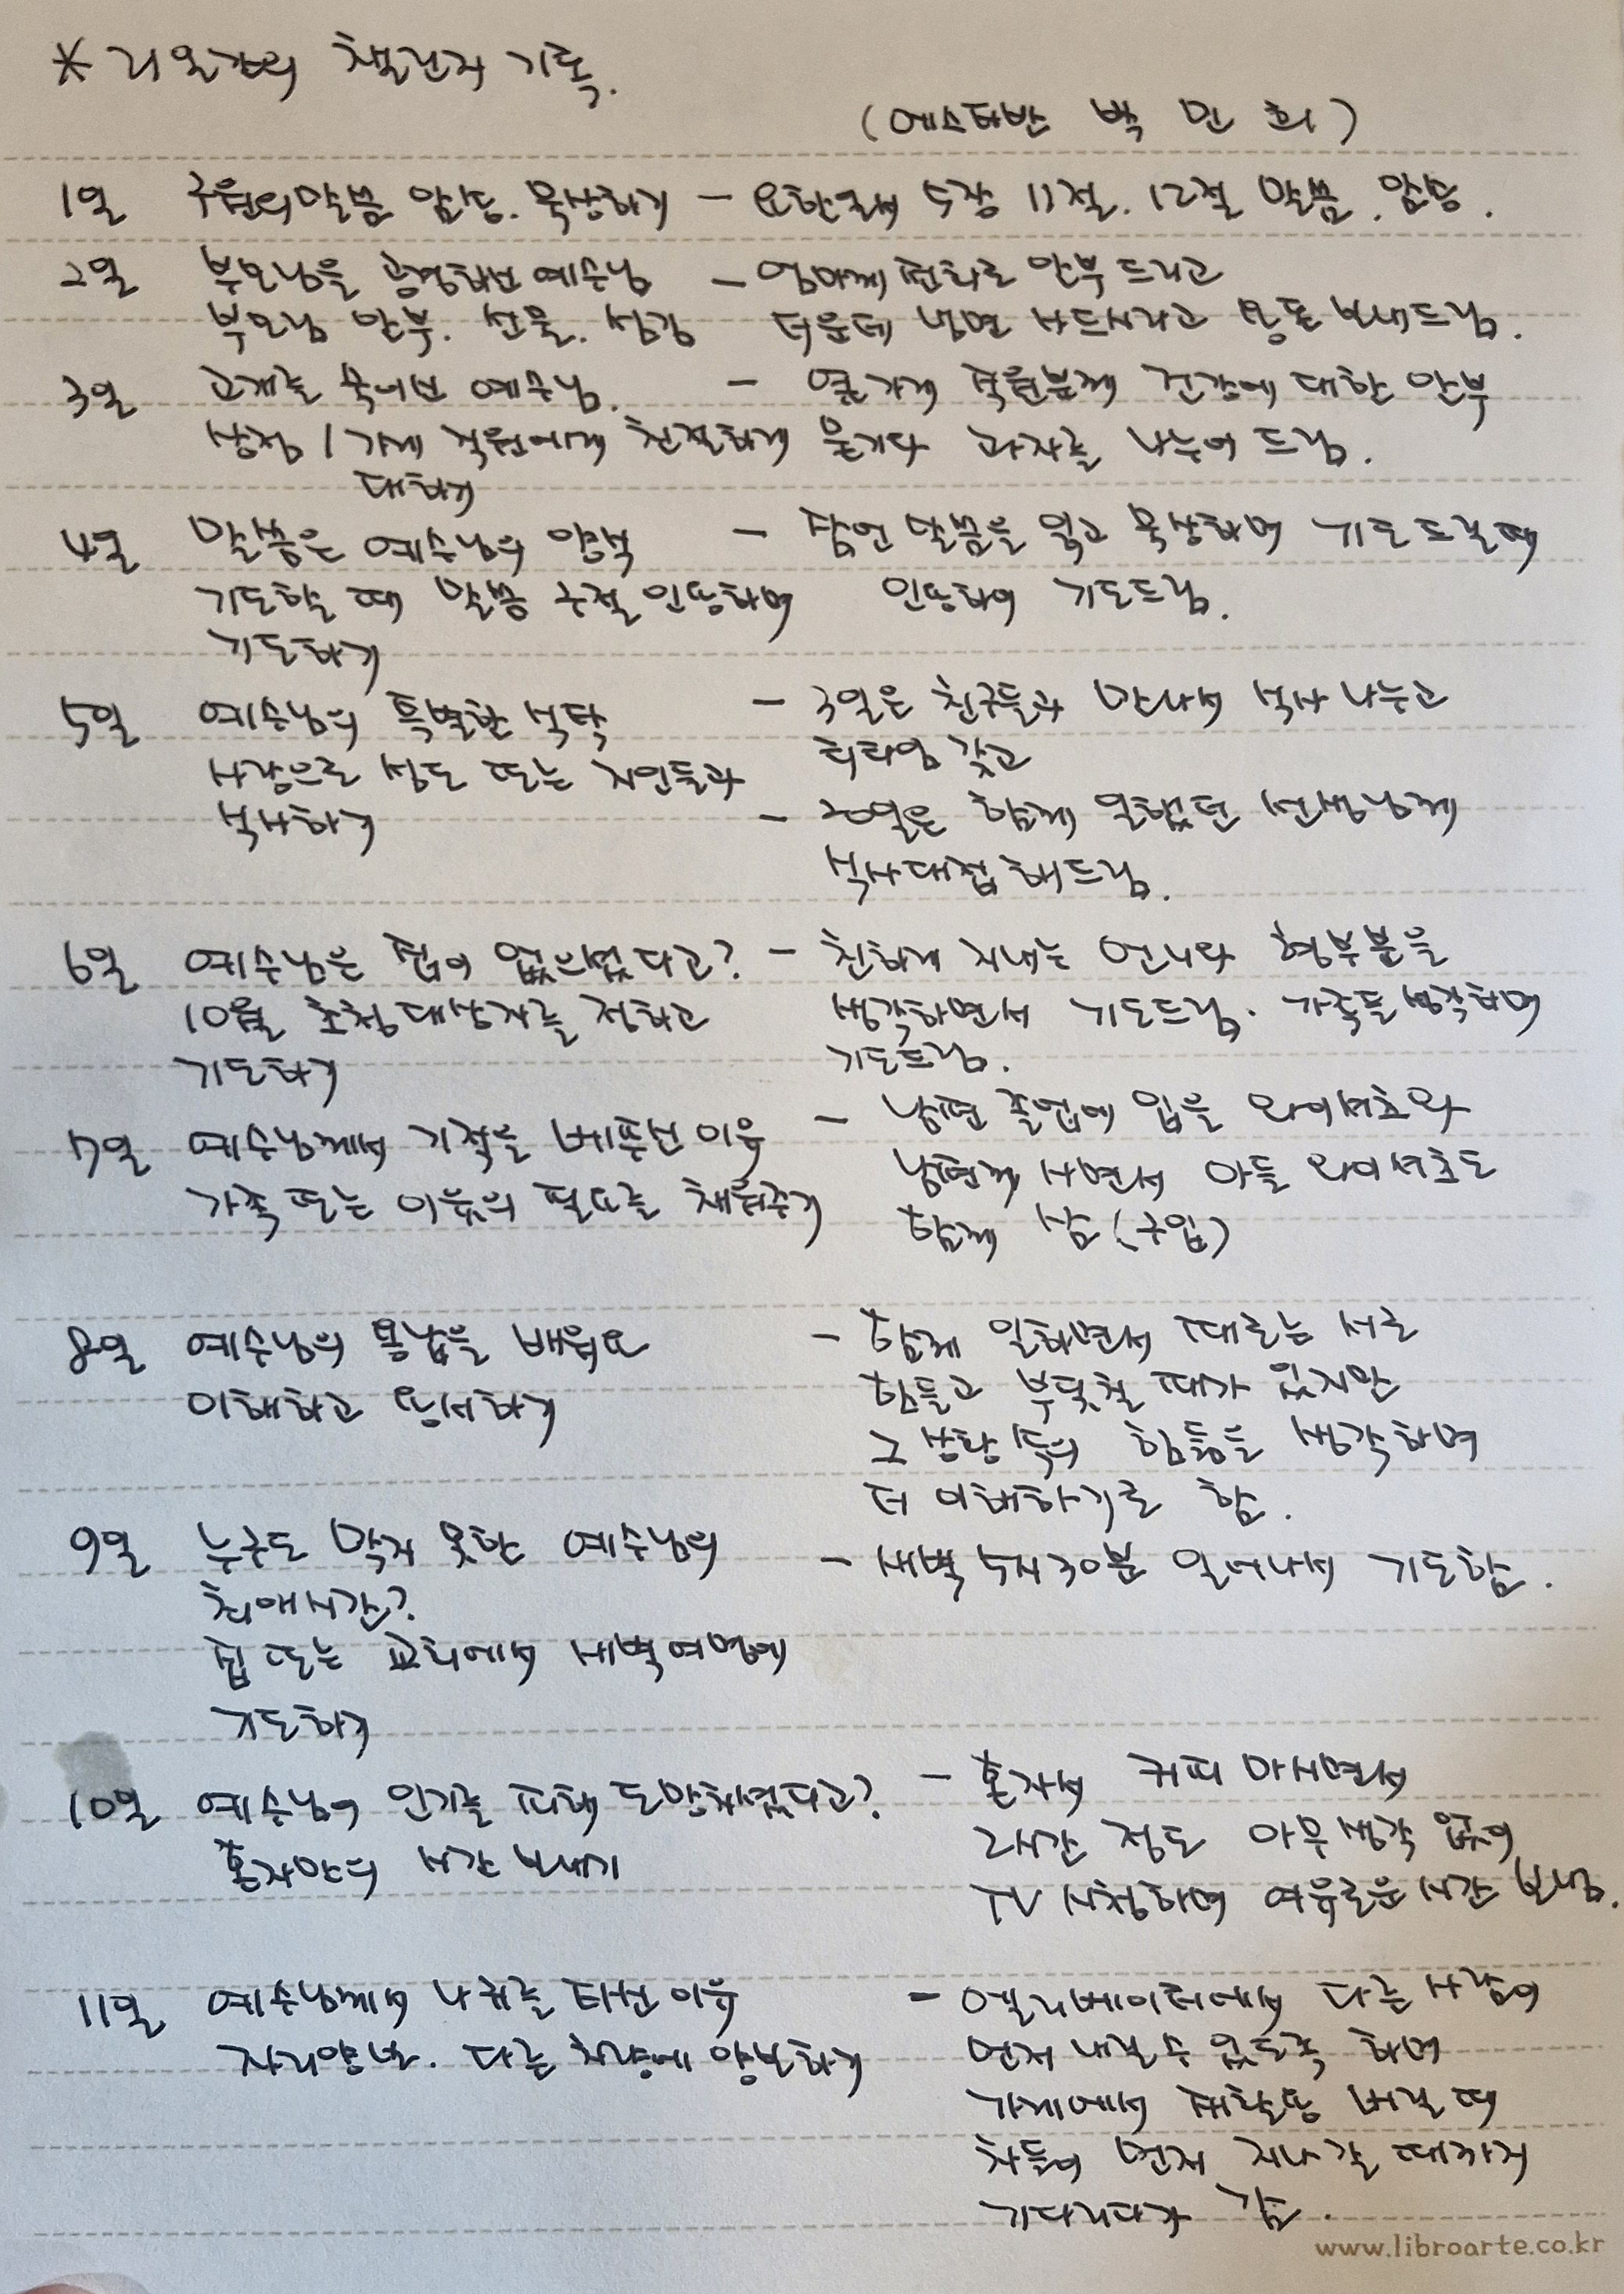 * 21일간의 챌린지 기록.
(에스더반 박 민 희)
1일 구원의말씀 암송. 묵상하기 - 요한일서 5장 11절. 12절 말씀. 암송.
2일 부모님을 공경하신 예수님 - 엄마께 전화로 안부 드리고
부모님 안부. 선물. 섬김 더운데 냉면 사드시라고 용돈 보내드림.
3일 고개를 숙이신 예수님. - 옆가게 직원분께 건강에 대한 안부
상점 / 가게 직원에게 친절하게 묻기와 과자를 나누어 드림.
대하기
4일 말씀은 예수님의 양식 - 잠언 말씀을 읽고 묵상하며 기도드릴때
기도할 때 말씀 구절 인용하며 인용하여 기도드림.
기도하기
5일 예수님의 특별한 식탁 - 3일은 친구들과 만나서 식사 나누고
사랑으로 성도 또는 지인들과 티타임 갖고
식사하기 - 20일은 함께 일했던 선생님께
식사대접 해드림.
6일 예수님은 집이 없으셨다고? - 친하게 지내는 언니와 형부분을
10월 초청대상자를 정하고 생각하면서 기도드림. 가족들생각하며
기도하기 기도드림.
7일 예수님께서 기적을 베푸신 이유 - 남편 졸업에 입을 와이셔츠와
가족 또는 이웃의 필요를 채워주기 남편께 사면서 아들 와이셔츠도
함께 삼 (구입)
8일 예수님의 용납을 배워요 - 함께 일하면서 때로는 서로
이해하고 용서하기 힘들고 부딪칠 때가 있지만
그 상황 속의 힘듦을 생각하며
더 이해하기로 함.
9일 누구도 막지 못한 예수님의 - 새벽 5시30분 일어나서 기도함.
최애시간?
집 또는 교회에서 새벽여명에
기도하기
10일 예수님이 인기를 피해 도망치셨다고? - 혼자서 커피 마시면서
혼자만의 시간 보내기 2시간 정도 아무생각 없이
TV 시청하며 여유로운 시간 보냄.
11일 예수님께서 나귀를 타신 이유 - 엘리베이터에서 다른 사람이
자리양보. 다른 차량에 양보하기 먼저 내릴 수 있도록 하며
가게에서 재활용 버릴 때
차들이 먼저 지나갈 때까지
기다리다가 감.
www.libroarte.co.kr